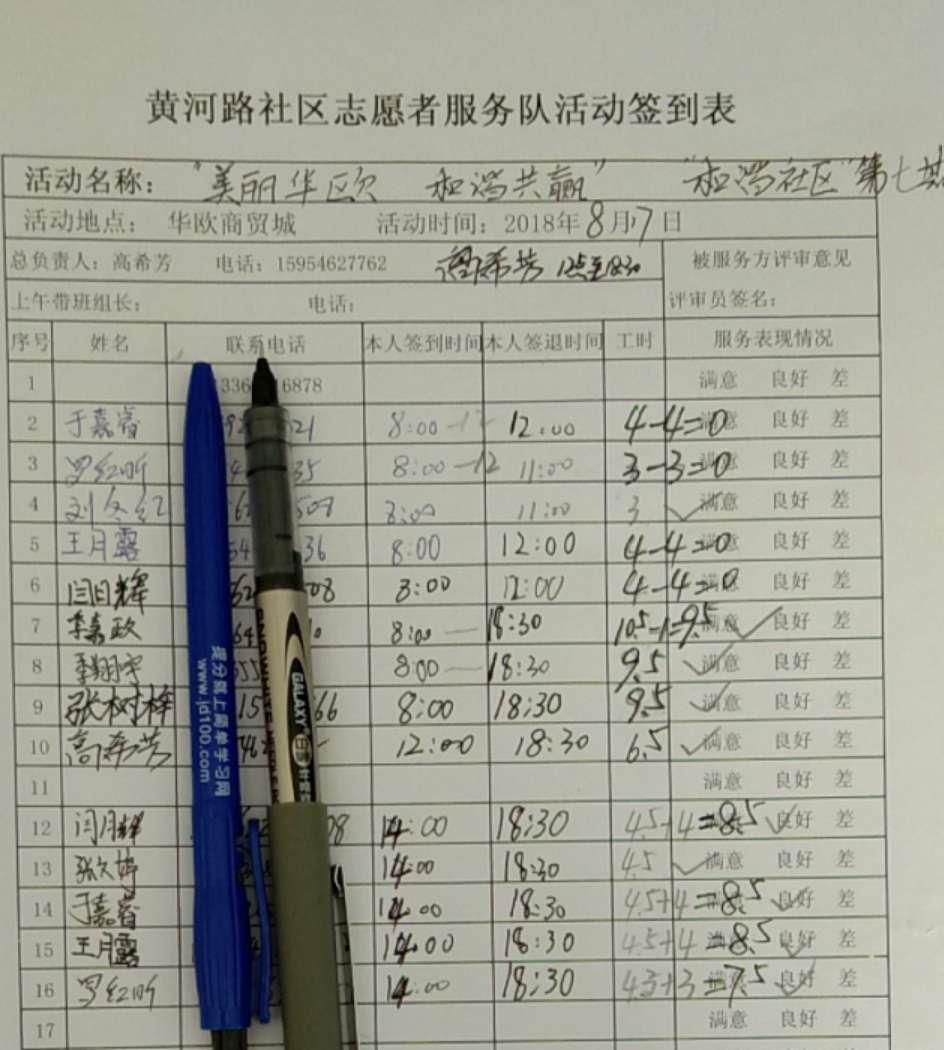 黄河路社区志愿者服务队活动签到表
活动名称： “美丽华欧 和谐共赢” “和谐社区”第七
活动地点： 华欧商贸城 活动时间：2018年8月17日
总负责人：高希芳 电话：15954627762 高希芳 12点至18:30 被服务方评审意见
上午带班组长： 电话： 评审员签名：
序号 姓名 联系电话 本人签到时间 本人签退时间 工时 服务表现情况
1 6878 满意 良好 差
2 于嘉睿 21 8:00-12 12:00 4-4=0 满意 良好 差
3 罗红昕 35 8:00-12 11:00 3-3=0 满意 良好 差
4 刘冬红 508 8:00 11:00 3 满意 良好 差
5 王月露 54 36 8:00 12:00 4-4=0 满意 良好 差
6 闫月辉 08 8:00 12:00 4-4=0 满意 良好 差
7 李嘉政 8:00 — 18:30 10.5-1=9.5 满意 良好 差
8 季翔宇 8:00 — 18:30 9.5 满意 良好 差
9 张树梓 15 66 8:00 18:30 9.5 满意 良好 差
10 高希芳 12:00 18:30 6.5 满意 良好 差
11 满意 良好 差
12 闫月辉 08 14:00 18:30 4.5+4=8.5 良好 差
13 张久婷 14:00 18:30 4.5 满意 良好 差
14 于嘉睿 14:00 18:30 4.5+4=8.5 良好 差
15 王月露 14:00 18:30 4.5+4=8.5 良好 差
16 罗红昕 14:00 18:30 4.5+3=7.5 良好 差
17 满意 良好 差
提分就上简单学习网
www.jd100.com
GALAXY